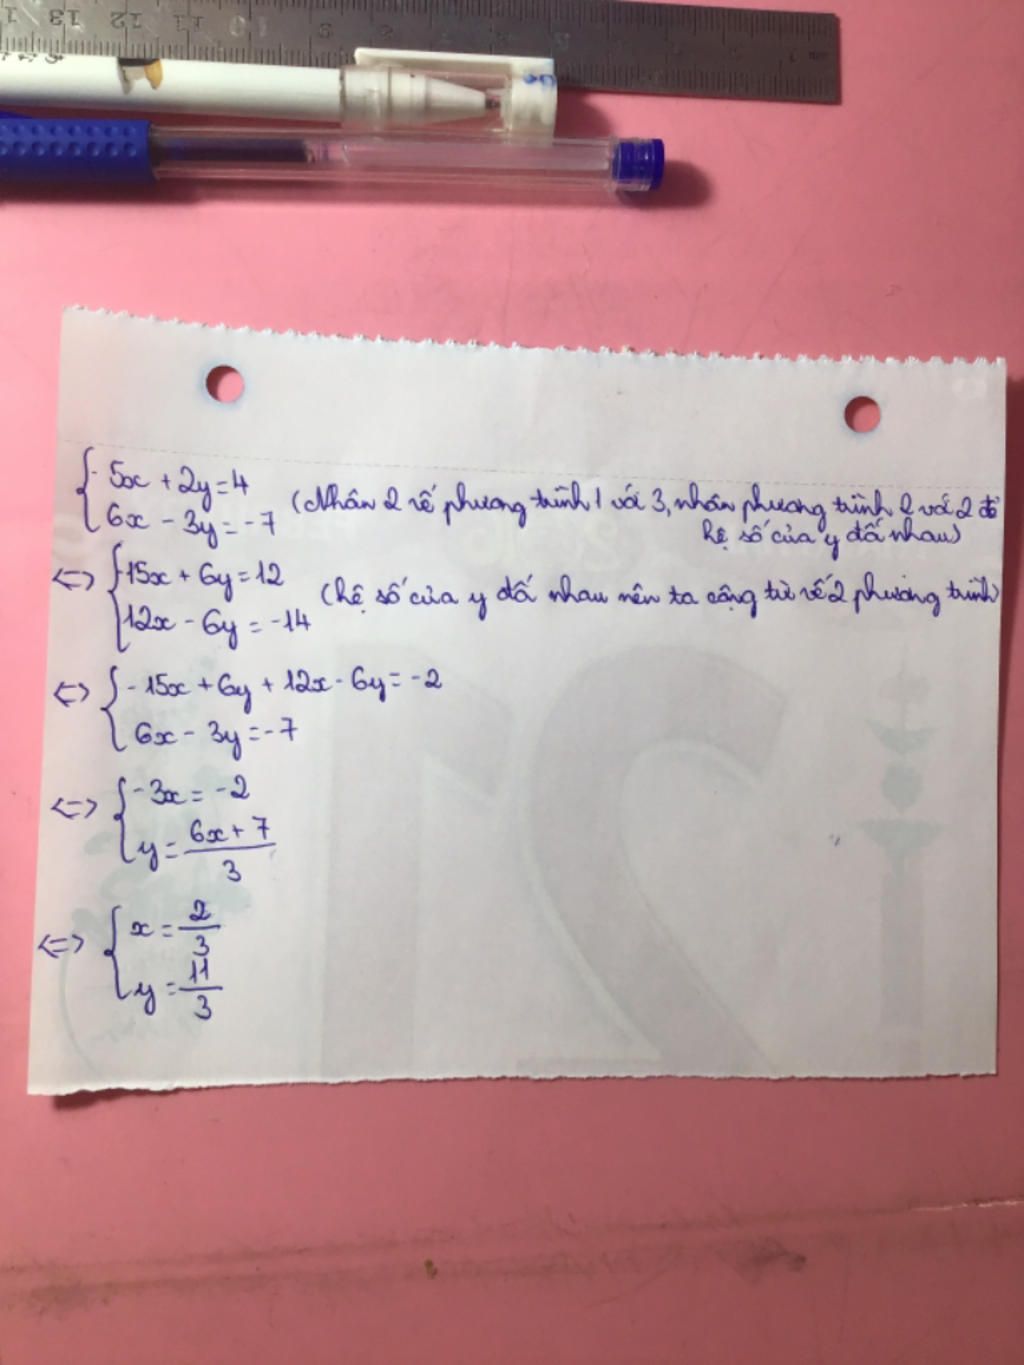 13 12 11 10 9 8 7
{ -5x + 2y = 4
6x - 3y = -7
(Nhân 2 vế phương trình 1 với 3, nhân phương trình 2 với 2 để
hệ số của y đối nhau)
<=> { -15x + 6y = 12
12x - 6y = -14
(hệ số của y đối nhau nên ta cộng từ vế 2 phương trình)
<=> { -15x + 6y + 12x - 6y = -2
6x - 3y = -7
<=> { -3x = -2
y = \frac{6x + 7}{3}
<=> { x = \frac{2}{3}
y = \frac{11}{3}